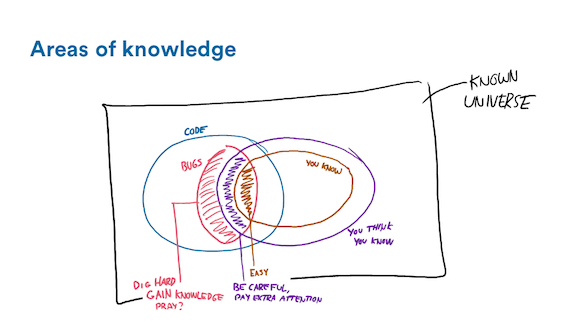 Areas of knowledge
KNOWN
UNIVERSE
CODE
BUGS
YOU KNOW
YOU THINK
YOU KNOW
EASY
DIG HARD
GAIN KNOWLEDGE
PRAY?
BE CAREFUL,
PAY EXTRA ATTENTION